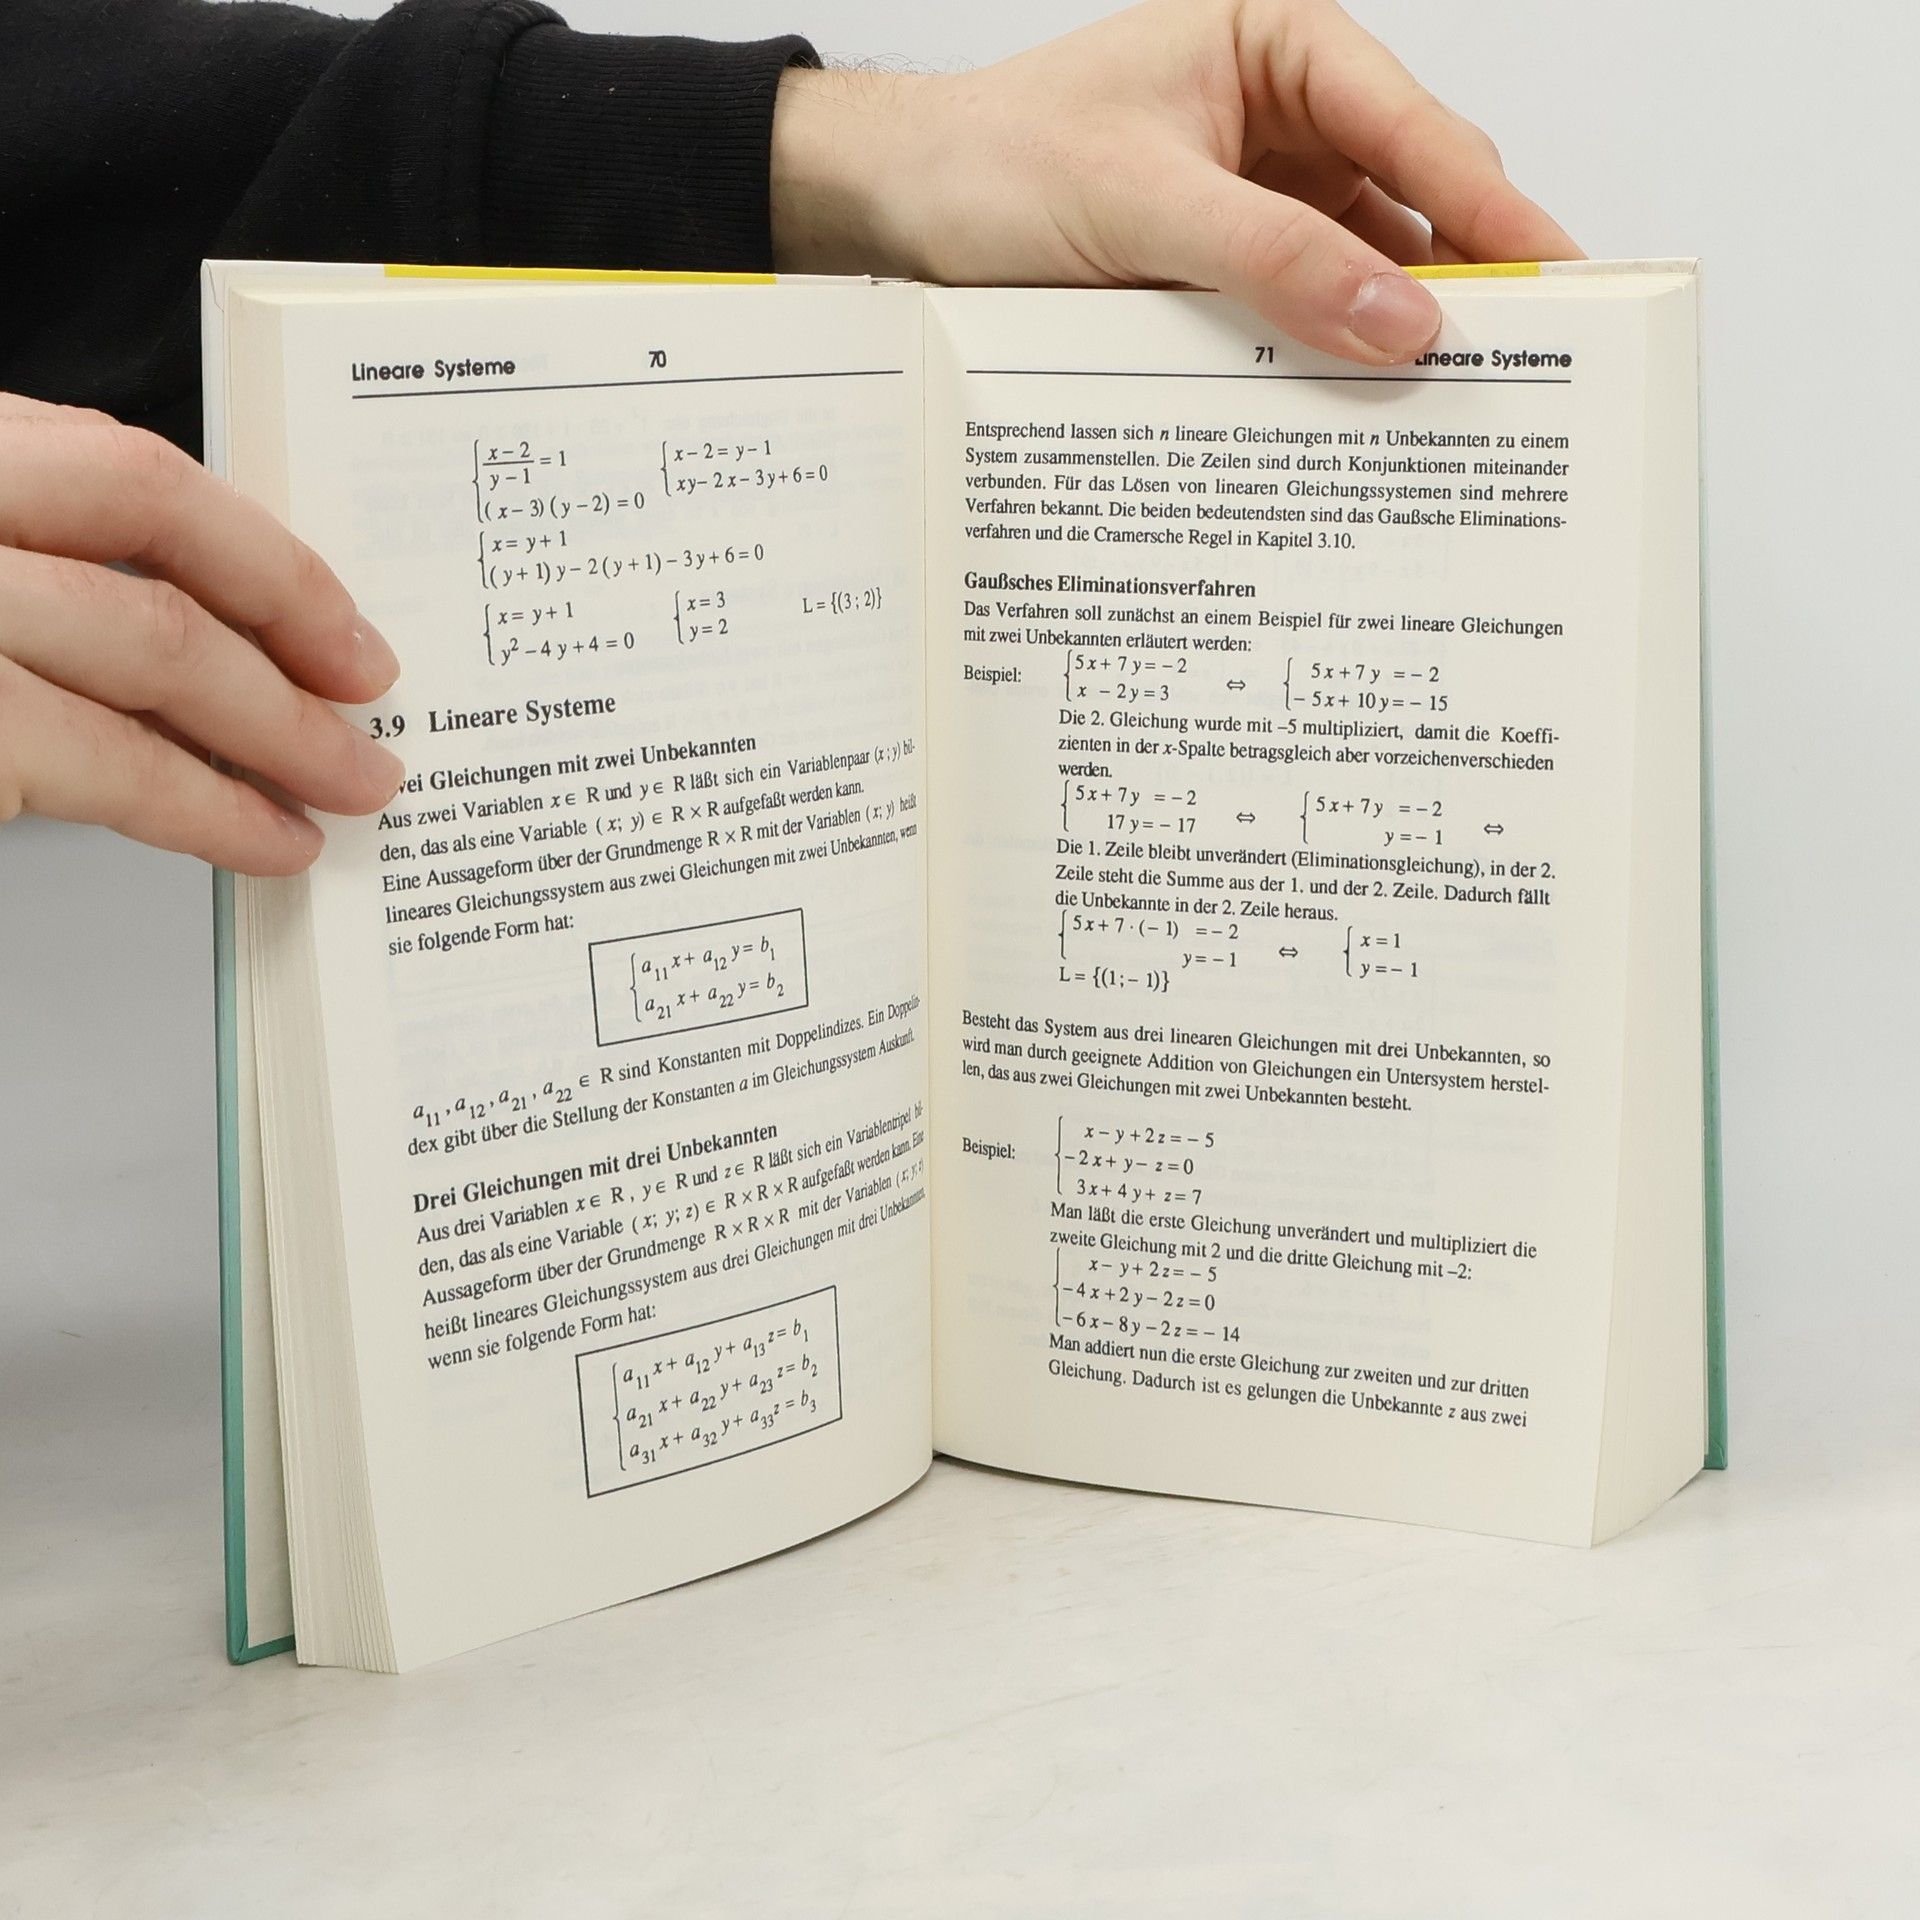 Lineare Systeme 70
x – 2 / y – 1 = 1
(x – 3) (y – 2) = 0
x – 2 = y – 1
xy – 2x – 3y + 6 = 0
x = y + 1
(y + 1) y – 2 (y + 1) – 3y + 6 = 0
x = y + 1
y² – 4y + 4 = 0
x = 3
y = 2
L = {(3 ; 2)}
3.9 Lineare Systeme
Gleichungen mit zwei Unbekannten
Aus zwei Variablen x ∈ R und y ∈ R läßt sich ein Variablenpaar (x ; y) bil-
den, das als eine Variable (x; y) ∈ R × R aufgefaßt werden kann.
Eine Aussageform über der Grundmenge R × R mit der Variablen (x; y) heißt
lineares Gleichungssystem aus zwei Gleichungen mit zwei Unbekannten, wenn
sie folgende Form hat:
a₁₁ x + a₁₂ y = b₁
a₂₁ x + a₂₂ y = b₂
a₁₁ , a₁₂ , a₂₁ , a₂₂ ∈ R sind Konstanten mit Doppelindizes. Ein Doppelin-
dex gibt über die Stellung der Konstanten a im Gleichungssystem Auskunft.
Drei Gleichungen mit drei Unbekannten
Aus drei Variablen x ∈ R , y ∈ R und z ∈ R läßt sich ein Variablentripel bil-
den, das als eine Variable (x; y; z) ∈ R × R × R aufgefaßt werden kann. Eine
Aussageform über der Grundmenge R × R × R mit der Variablen (x; y; z)
heißt lineares Gleichungssystem aus drei Gleichungen mit drei Unbekannten,
wenn sie folgende Form hat:
a₁₁ x + a₁₂ y + a₁₃ z = b₁
a₂₁ x + a₂₂ y + a₂₃ z = b₂
a₃₁ x + a₃₂ y + a₃₃ z = b₃
71 Lineare Systeme
Entsprechend lassen sich n lineare Gleichungen mit n Unbekannten zu einem
System zusammenstellen. Die Zeilen sind durch Konjunktionen miteinander
verbunden. Für das Lösen von linearen Gleichungssystemen sind mehrere
Verfahren bekannt. Die beiden bedeutendsten sind das Gaußsche Eliminations-
verfahren und die Cramersche Regel in Kapitel 3.10.
Gaußsches Eliminationsverfahren
Das Verfahren soll zunächst an einem Beispiel für zwei lineare Gleichungen
mit zwei Unbekannten erläutert werden:
Beispiel:
5x + 7y = – 2
x – 2y = 3
⇔
5x + 7y = – 2
– 5x + 10y = – 15
Die 2. Gleichung wurde mit –5 multipliziert, damit die Koeffi-
zienten in der x-Spalte betragsgleich aber vorzeichenverschieden
werden.
5x + 7y = – 2
17y = – 17
⇔
5x + 7y = – 2
y = – 1
⇔
Die 1. Zeile bleibt unverändert (Eliminationsgleichung), in der 2.
Zeile steht die Summe aus der 1. und der 2. Zeile. Dadurch fällt
die Unbekannte in der 2. Zeile heraus.
5x + 7 · (– 1) = – 2
y = – 1
⇔
x = 1
y = – 1
L = {(1; – 1)}
Besteht das System aus drei linearen Gleichungen mit drei Unbekannten, so
wird man durch geeignete Addition von Gleichungen ein Untersystem herstel-
len, das aus zwei Gleichungen mit zwei Unbekannten besteht.
Beispiel:
x – y + 2z = – 5
–2x + y – z = 0
3x + 4y + z = 7
Man läßt die erste Gleichung unverändert und multipliziert die
zweite Gleichung mit 2 und die dritte Gleichung mit –2:
x – y + 2z = – 5
–4x + 2y – 2z = 0
–6x – 8y – 2z = – 14
Man addiert nun die erste Gleichung zur zweiten und zur dritten
Gleichung. Dadurch ist es gelungen die Unbekannte z aus zwei